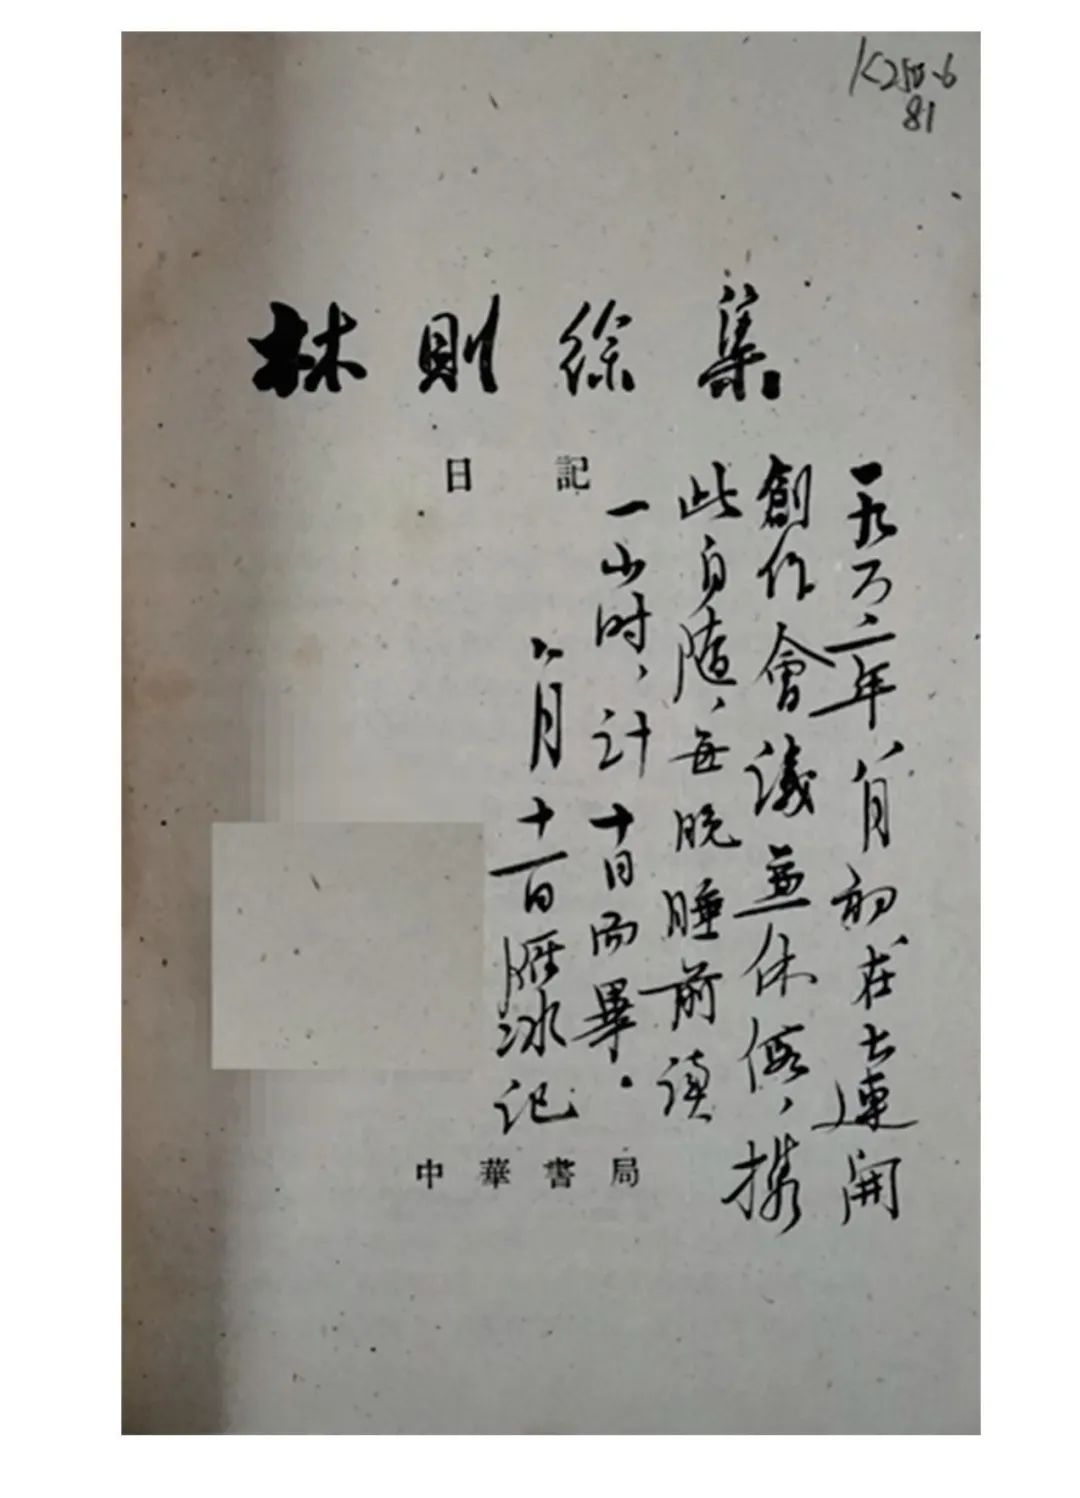 K250.6
81
林則徐集
日記
一九六二年八月初在大連開
創作會議並休假，攜
此自隨，每晚睡前读
一小时，计十日而畢。
八月十一日雁冰记
中華書局